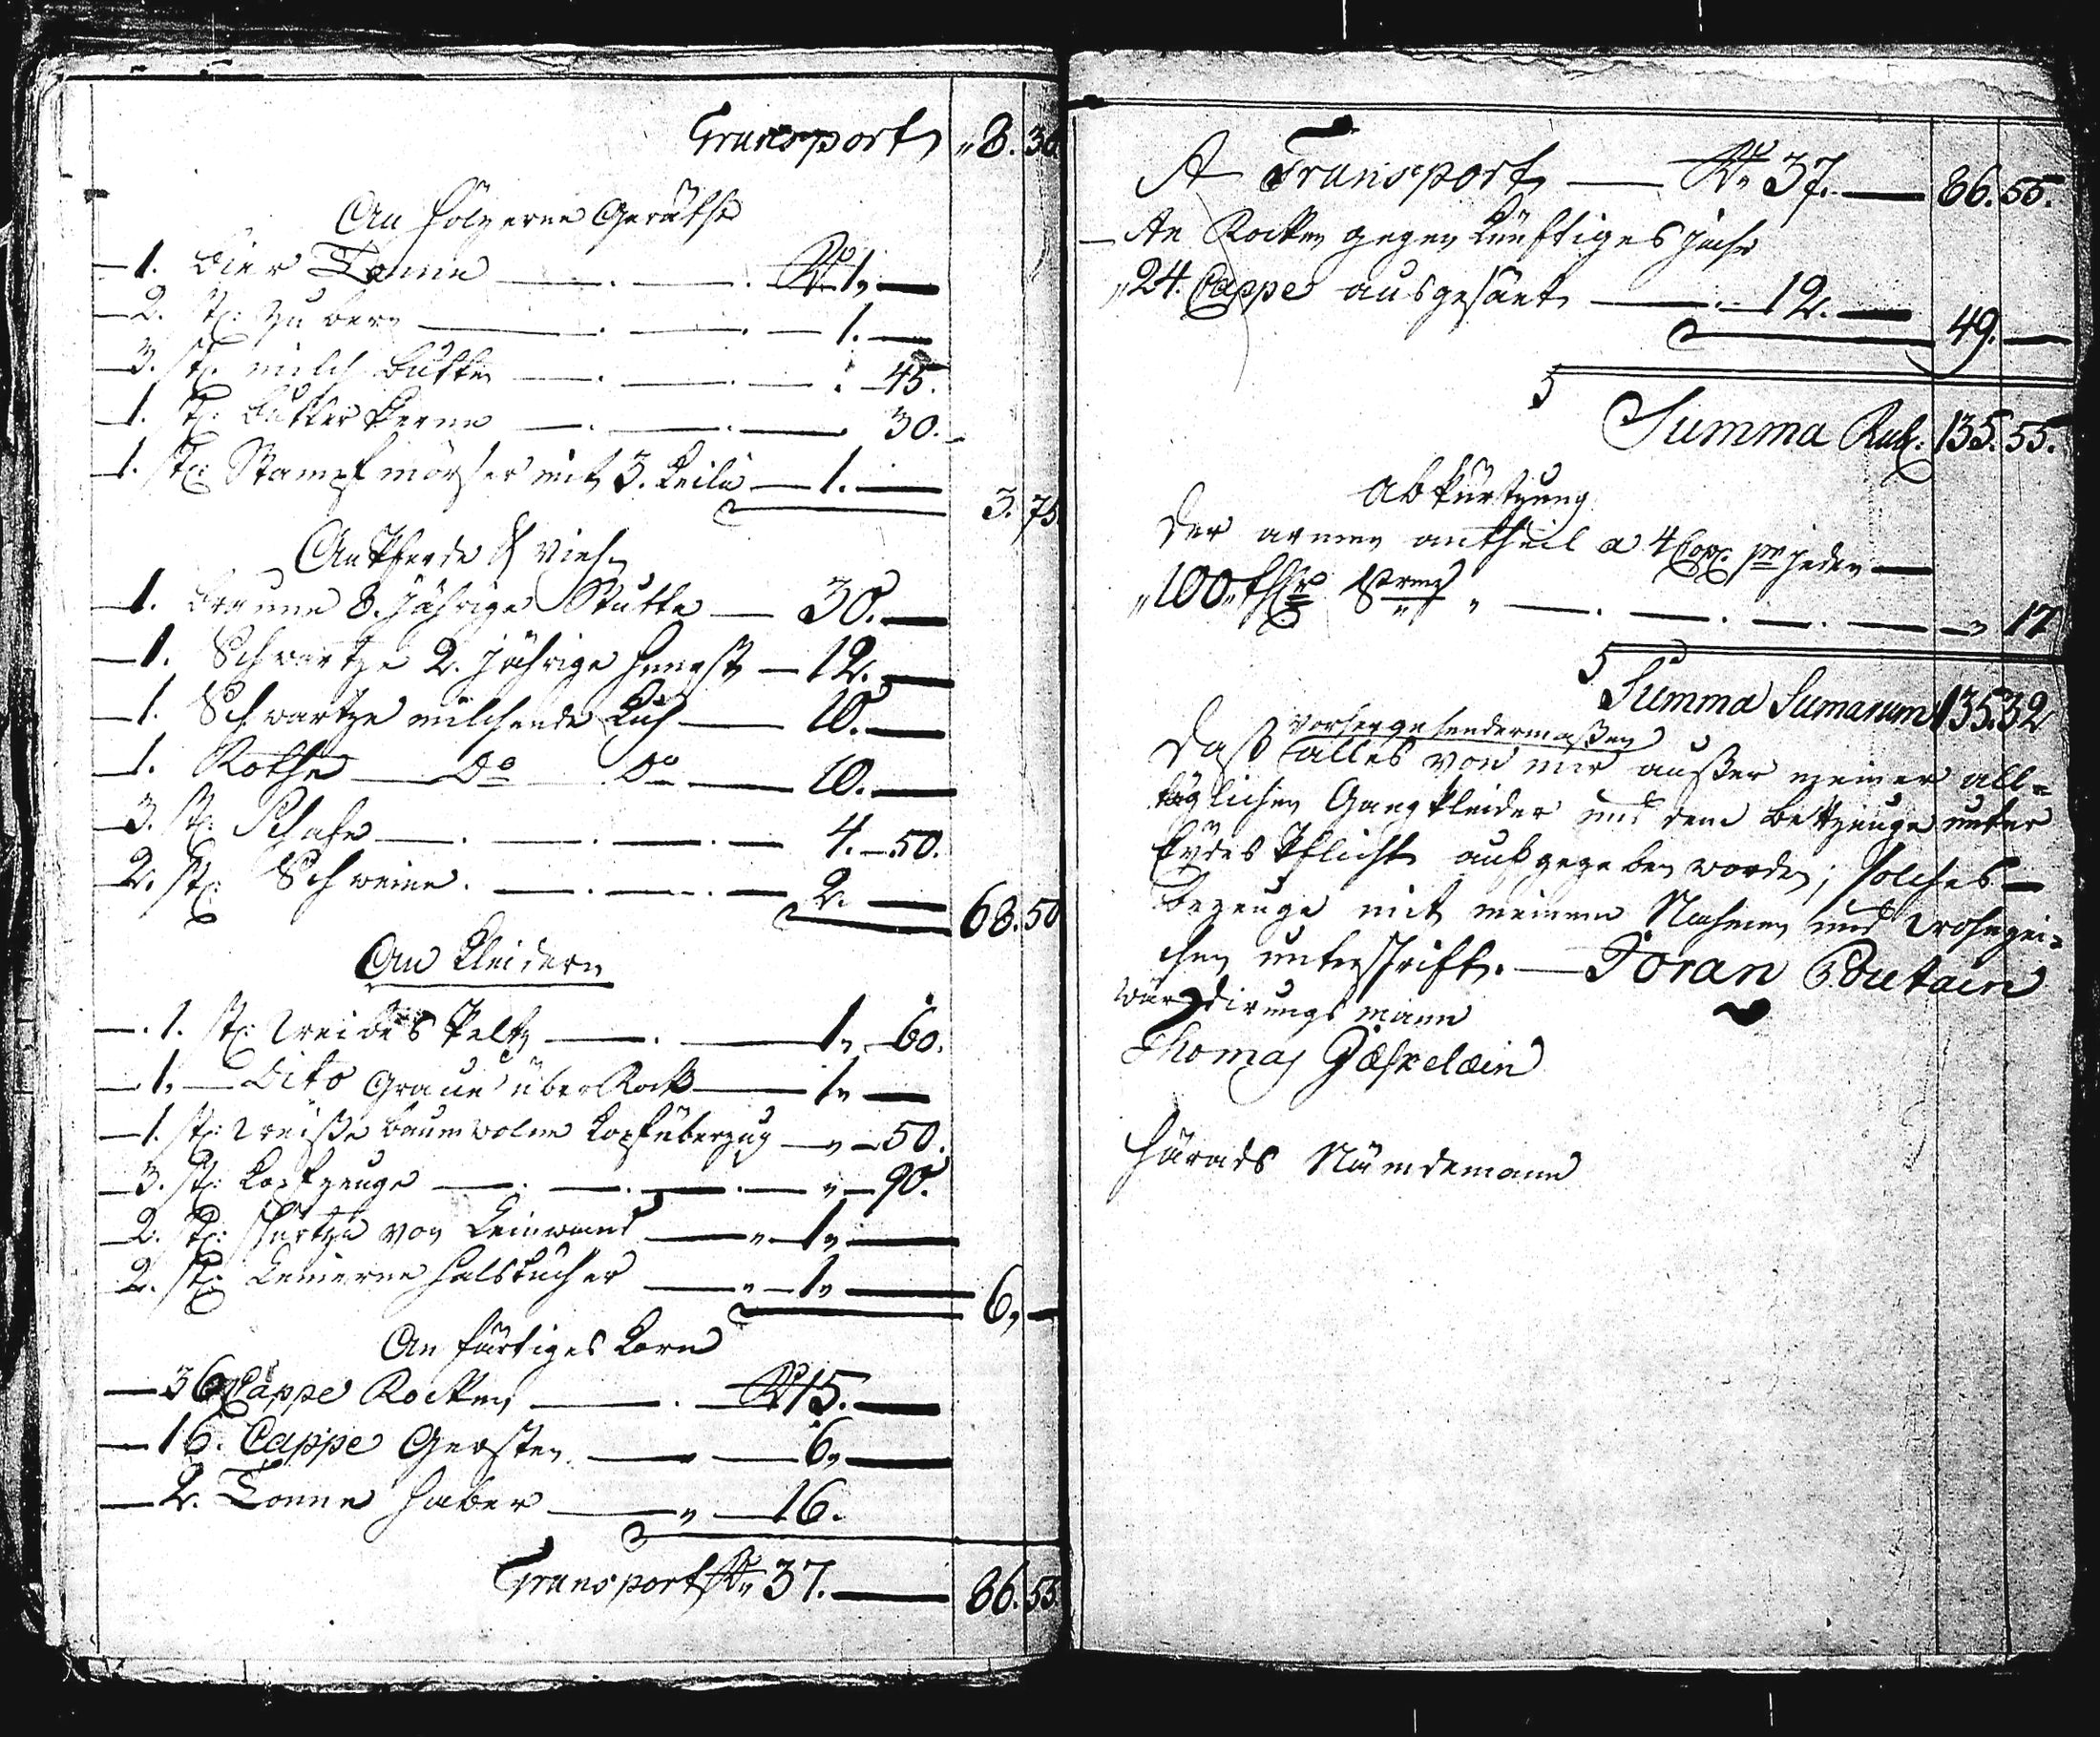 Transport „ 8. 30
An Höltzerne Geräthe
1. Bier Tonne — Rub 1„ —
2. st: Zubern — 1. —
3. st: milch Bütten — „ 45.
1. st: Butter Kerne — 30.
1. st: Stampf mörser mit 3. Keile — 1. —
3. 75
An Pferde & Vieh
1. Braune 8. Jährige Stutte — 30. —
1. Schwartze 2. Jährige Hengst — 12. —
1. Schwartze milchende Kuh — 10. —
1. Rothe — Do — Do — 10. —
3. st: Schafe — 4. 50.
2. st: Schweine — 2. —
68. 50
An Kleidern
1. st: Peltz — 1„ 60.
1„ — Dito Graue über Rock — 1„ —
1. st: Weiße baumwolne Kopfüberzug — „ 50.
3. st: Kopfzeuge — „ 90.
2. st: Schürtze von Leinwand — „ 1„ —
2. st: Leinerne Halstücher — „ 1„ —
6„ —
An färtiges Korn
36 Cappe Rocken — Rub 15. —
16. Cappe Gersten — 6„ —
2. Tonne Haber — „ 16.
Transport Rub 37. — 86. 55.
A Transport — Rub 37. — 86. 55.
An Rocken gegen künftiges Jahr
„ 24. Cappe ausgesäet — 12. —
49. —
Summa Rub: 135. 55.
Abkürtzung
Der armen antheil a 4 Cop: pr jeden —
„ 100„ — „ 17
Summa Sumarum 135. 32
vorhergehendermaßen
Daß alles von mir außer meiner all=
täglichen Gangkleider und dem Bettzeuge unter
Eydes Pflicht aufgegeben worden; solches —
bezeuge mit meinem Nahmen und
chen unterschrift. — Göran Poutain
Würdirungs mann
Thomas Hæskelæin
Härads Nämdemann